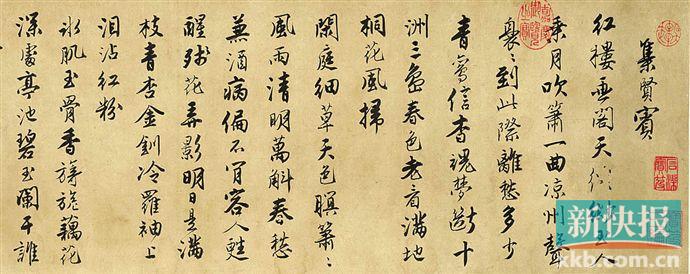 集賢賓
红樓画阁天縹緲玉人
乘月吹簫一曲凉州聲
裊〻到此際離愁多少
青鸞信杳魂夢斷十
洲三島春色老看滿地
桐花風掃
閑庭細草天色暝簫〻
風雨清明萬斛春愁
兼酒病偏不肯容人甦
醒殘花弄影明日是滿
枝青杏金釧冷羅袖上
泪沾红粉
冰肌玉骨香旖旎藕花
深處亭池碧玉闌干誰
新快报
xkb.com.cn